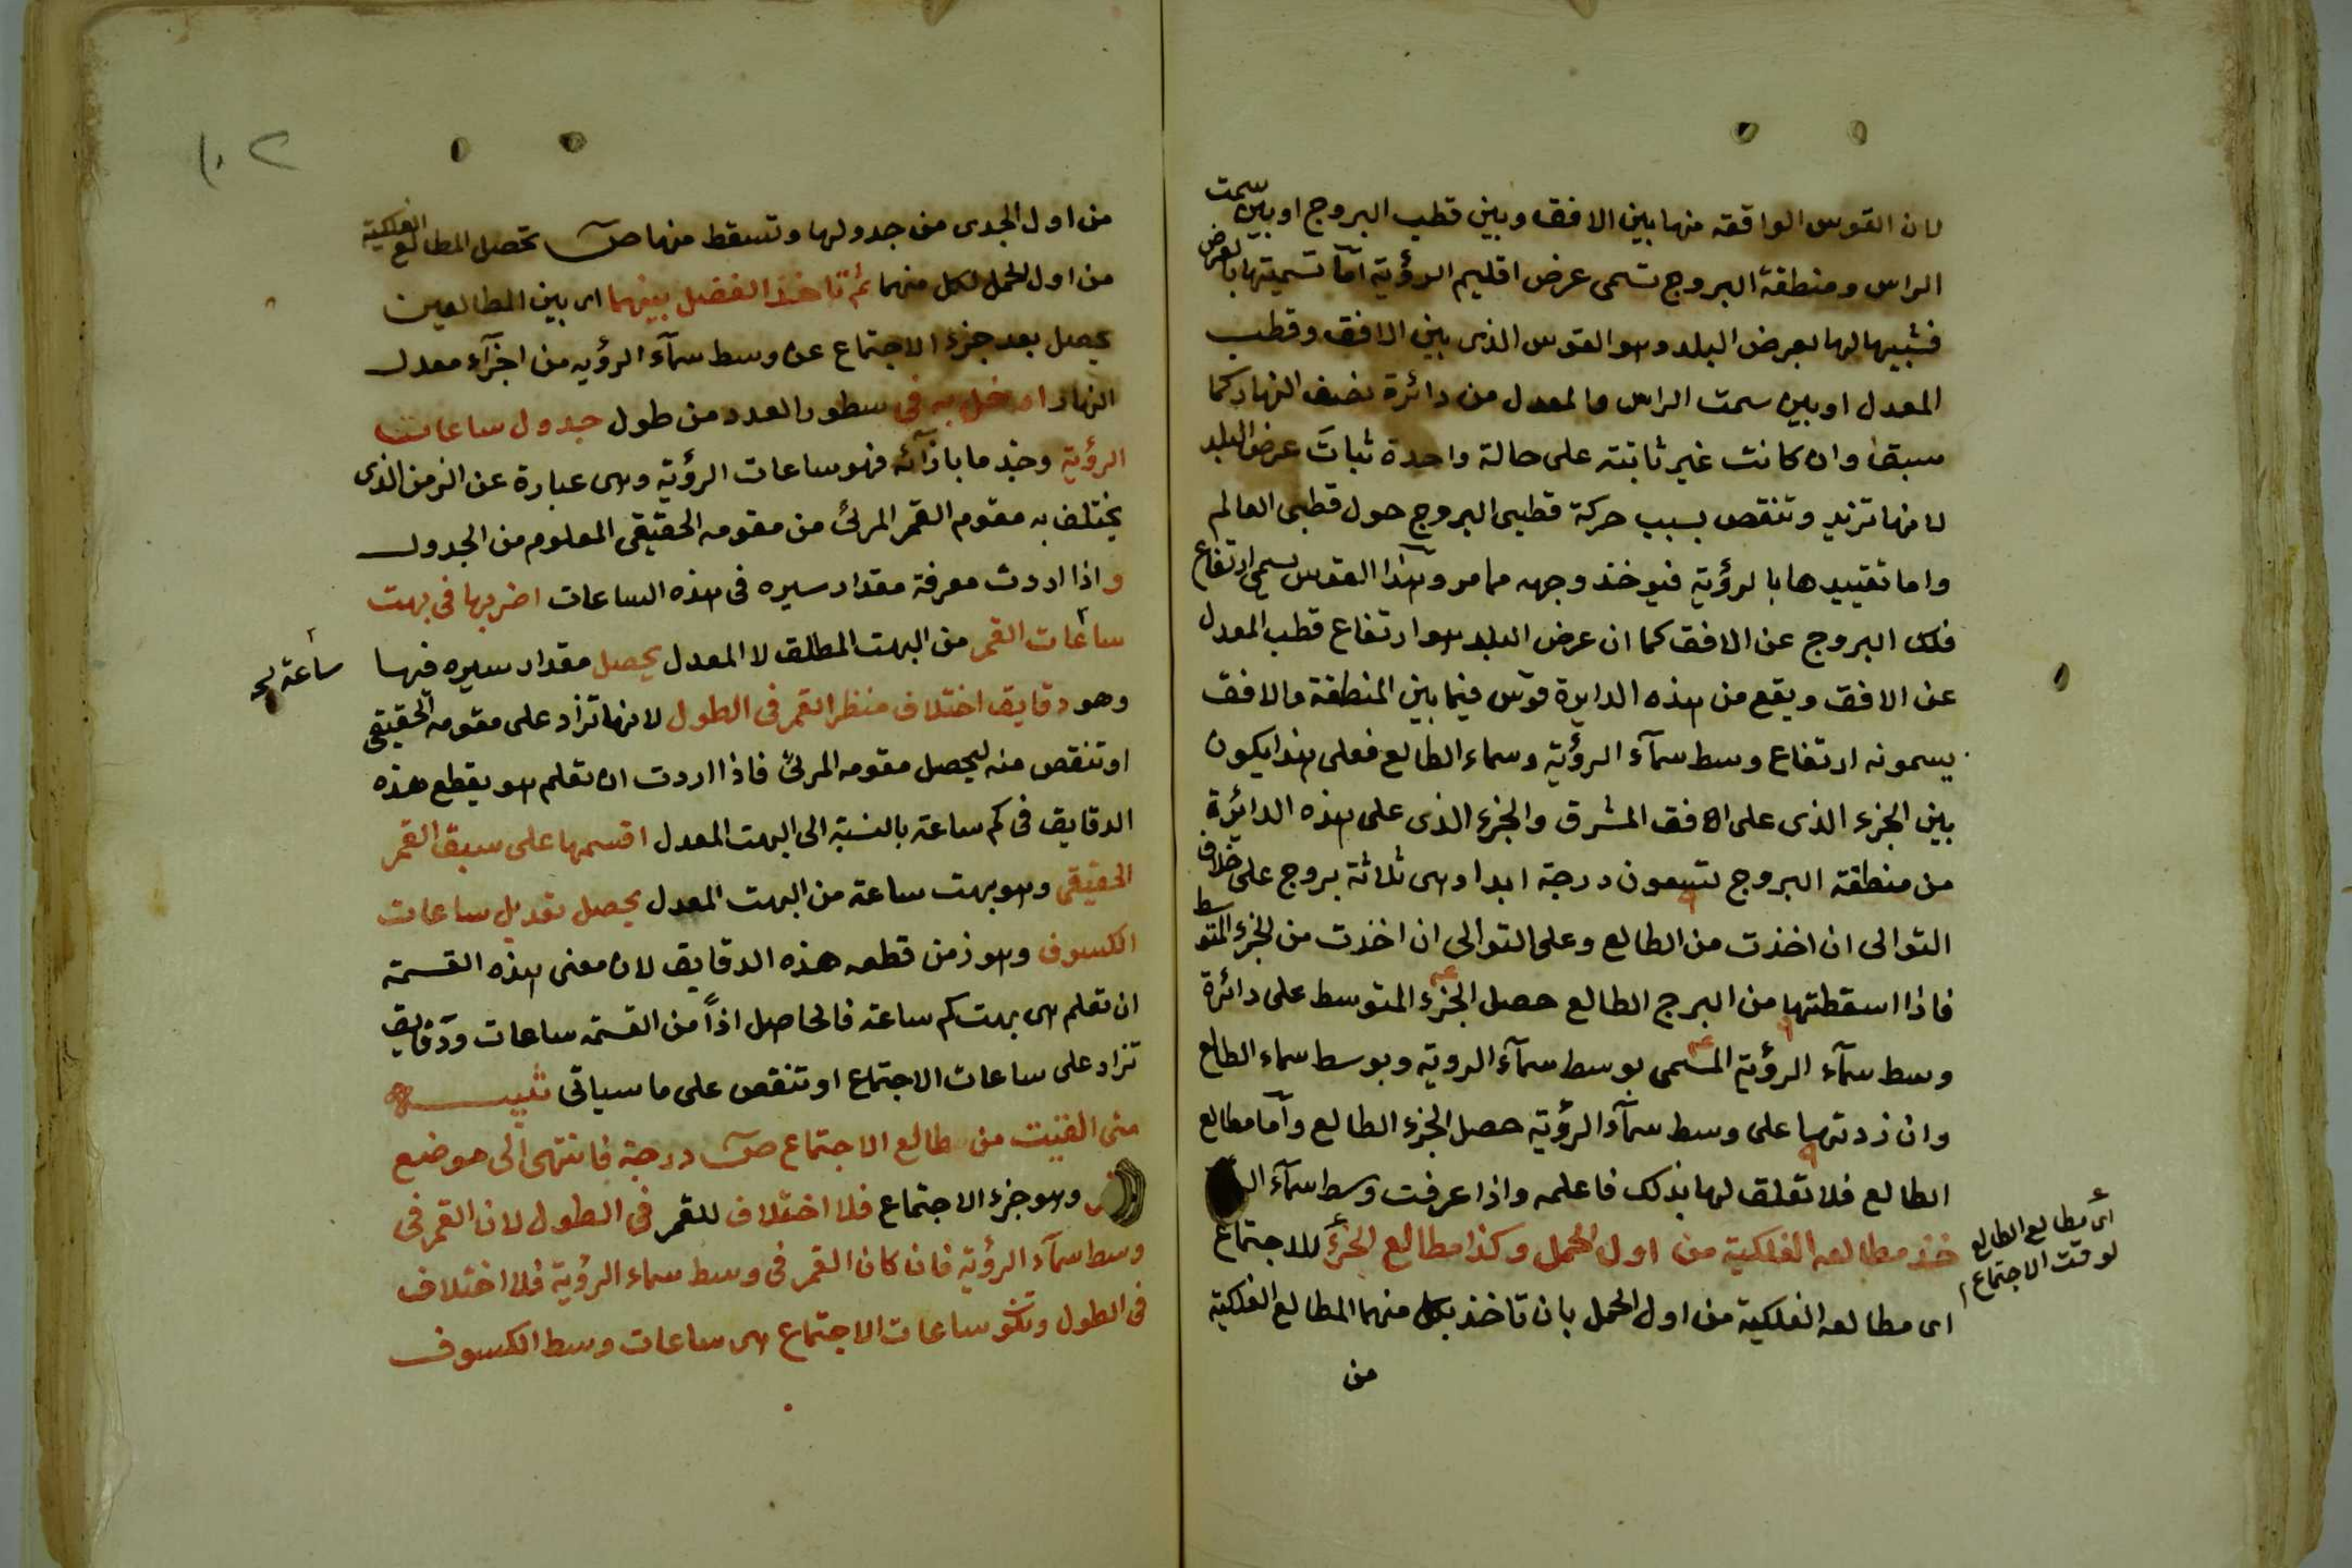 لان القوس الواقعة منها بين الافق وبين قطب البروج او بين سمت
الراس ومنطقة البروج تسمى عرض اقليم الرؤية اما تسميتها بالعرض
فتشبيها لها بعرض البلد وهو القوس الذى بين الافق وقطب
المعدل او بين سمت الراس والمعدل من دائرة نصف النهار كما
سبق وان كانت غير ثابتة على حالة واحدة ثبات عرض البلد
لانها تزيد وتنقص بسبب حركة قطبى البروج حول قطبى العالم
واما تقييدها بالرؤية فيوخذ وجهه مما مر وهذا القوس يسمى ارتفاع
فلك البروج عن الافق كما ان عرض البلد هو ارتفاع قطب المعدل
عن الافق ويقع من هذه الدايرة قوس فيما بين المنطقة والافق
يسمونه ارتفاع وسط سمآء الرؤية وسماء الطالع فعلى هذا يكون
بين الجزء الذى على الافق المشرق والجزء الذى على هذه الدائرة
من منطقة البروج تسعون درجة ابدا وهى ثلاثة بروج على خلاف
التوالى ان اخذت من الطالع وعلى التوالى ان اخذت من الجزء المتوسط
فاذا اسقطتها من البرج الطالع حصل الجزء المتوسط على دائرة
وسط سمآء الرؤية المسمى بوسط سمآء الروية وبوسط سماء الطالع
وان زدتها على وسط سمآء الرؤية حصل الجزء الطالع وأما مطالع
الطالع فلا تعلق لها بذلك فاعلمه واذا عرفت وسط سمآء
خذ مطالعه الفلكية من اول الحمل وكذا مطالع الجزء للاجتماع
اى مطالع الطالع
لوقت الاجتماع
اى مطالعه الفلكية من اول الحمل بان تاخذ لكل منهما المطالع الفلكية
من
١٠٢
من اول الجدى من جدولها وتسقط منها ص تحصل المطالع الفلكية
من اول الحمل لكل منهما ثم تاخذ الفضل بينهما اى بين المطالعين
يحصل بعد جزء الاجتماع عن وسط سمآء الرؤيه من اجزآء معدل
النهار ادخل به فى سطور العدد من طول جدول ساعات
الرؤية وخذ ما بازآئه فهو ساعات الرؤية وهى عبارة عن الزمن الذى
يختلف به مقوم القمر المرئى من مقومه الحقيقى المعلوم من الجدول
واذا اردت معرفة مقدار سيره فى هذه الساعات اضربها فى بهت
ساعات القمر من البهت المطلق لا المعدل يحصل مقدار سيره فيها
ساعة
وهو دقايق اختلاف منظر القمر فى الطول لانها تزاد على مقومه الحقيقى
او تنقص منه ليحصل مقومه المرئى فاذا اردت ان تعلم هو يقطع هذه
الدقايق فى كم ساعة بالنسبة الى البهت المعدل اقسمها على سبق القمر
الحقيقى وهو بهت ساعة من البهت المعدل يحصل تعديل ساعات
الكسوف وهو زمن قطعه هذه الدقايق لان معنى هذه القسمة
ان تعلم هى بهت كم ساعة فالحاصل اذاً من القسمة ساعات ودقايق
تزاد على ساعات الاجتماع او تنقص على ما سياتى تنبيه
متى القيت من طالع الاجتماع ص درجة فانتهى الى موضع
وهو جزء الاجتماع فلا اختلاف للقمر فى الطول لان القمر فى
وسط سمآء الرؤية فان كان القمر فى وسط سماء الرؤية فلا اختلاف
فى الطول وتكو ساعات الاجتماع هى ساعات وسط الكسوف